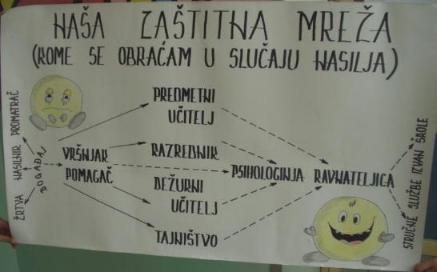 NAŠA ZAŠTITNA MREŽA
(KOME SE OBRAĆAM U SLUČAJU NASILJA)
ŽRTVA NASILNIK PROMATRAČ
DOGAĐAJ
VRŠNJAK
POMAGAČ
PREDMETNI
UČITELJ
RAZREDNIK
DEŽURNI
UČITELJ
TAJNIŠTVO
PSIHOLOGINJA
RAVNATELJICA
STRUČNE SLUŽBE IZVAN ŠKOLE